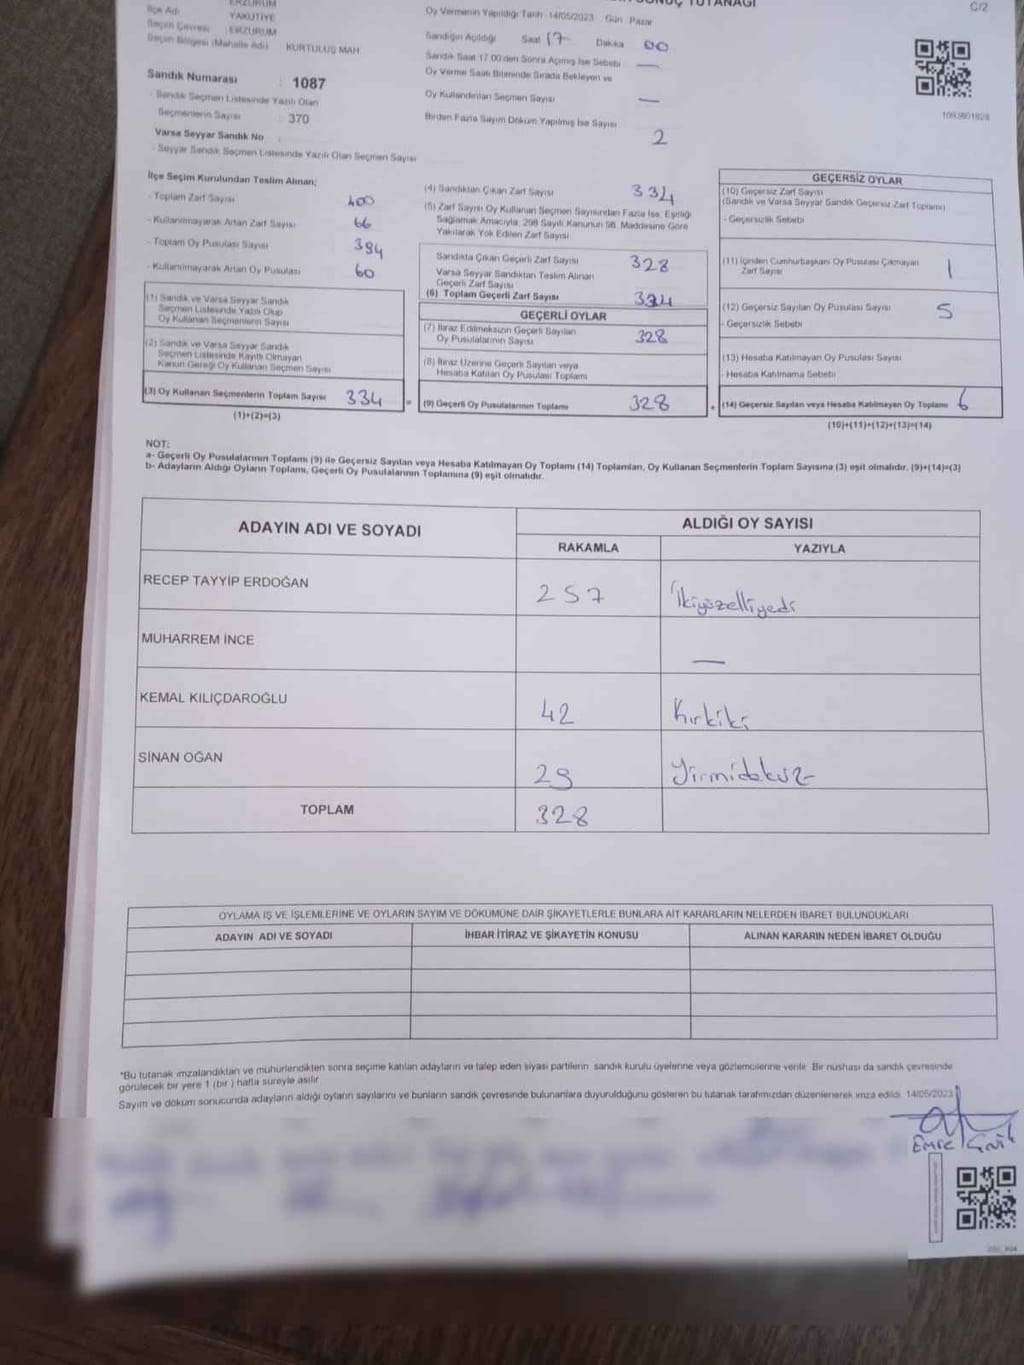 SONUÇ TUTANAĞI
C/2
İlçe Adı YAKUTİYE
Seçim Çevresi ERZURUM
Seçim Bölgesi (Mahalle Adı) KURTULUŞ MAH.
Sandık Numarası : 1087
- Sandık Seçmen Listesinde Yazılı Olan
Seçmenlerin Sayısı : 370
Varsa Seyyar Sandık No :
- Seyyar Sandık Seçmen Listesinde Yazılı Olan Seçmen Sayısı
Oy Vermenin Yapıldığı Tarih 14/05/2023 Gün Pazar
Sandığın Açıldığı Saat 17 Dakika 00
Sandık Saat 17.00'den Sonra Açılmış İse Sebebi —
Oy Verme Saati Bitiminde Sırada Bekleyen ve
Oy Kullandırılan Seçmen Sayısı —
Birden Fazla Sayım Döküm Yapılmış İse Sayısı 2
1093801828
İlçe Seçim Kurulundan Teslim Alınan;
- Toplam Zarf Sayısı 400
- Kullanılmayarak Artan Zarf Sayısı 66
- Toplam Oy Pusulası Sayısı 394
- Kullanılmayarak Artan Oy Pusulası 60
(1) Sandık ve Varsa Seyyar Sandık
Seçmen Listesinde Yazılı Olup
Oy Kullanan Seçmenlerin Sayısı
(2) Sandık ve Varsa Seyyar Sandık
Seçmen Listesinde Kayıtlı Olmayan
Kanun Gereği Oy Kullanan Seçmen Sayısı
(3) Oy Kullanan Seçmenlerin Toplam Sayısı 334
(1)+(2)=(3)
(4) Sandıktan Çıkan Zarf Sayısı 334
(5) Zarf Sayısı Oy Kullanan Seçmen Sayısından Fazla İse, Eşitliği
Sağlamak Amacıyla, 298 Sayılı Kanunun 98. Maddesine Göre
Yakılarak Yok Edilen Zarf Sayısı
Sandıkta Çıkan Geçerli Zarf Sayısı 328
Varsa Seyyar Sandıktan Teslim Alınan
Geçerli Zarf Sayısı
(6) Toplam Geçerli Zarf Sayısı 334
GEÇERLİ OYLAR
(7) İtiraz Edilmeksizin Geçerli Sayılan
Oy Pusulalarının Sayısı 328
(8) İtiraz Üzerine Geçerli Sayılan veya
Hesaba Katılan Oy Pusulası Toplamı
= (9) Geçerli Oy Pusulalarının Toplamı 328
GEÇERSİZ OYLAR
(10) Geçersiz Zarf Sayısı
(Sandık ve Varsa Seyyar Sandık Geçersiz Zarf Toplamı)
- Geçersizlik Sebebi
(11) İçinden Cumhurbaşkanı Oy Pusulası Çıkmayan
Zarf Sayısı 1
(12) Geçersiz Sayılan Oy Pusulası Sayısı 5
- Geçersizlik Sebebi
(13) Hesaba Katılmayan Oy Pusulası Sayısı
- Hesaba Katılmama Sebebi
+ (14) Geçersiz Sayılan veya Hesaba Katılmayan Oy Toplamı 6
(10)+(11)+(12)+(13)=(14)
NOT:
a- Geçerli Oy Pusulalarının Toplamı (9) ile Geçersiz Sayılan veya Hesaba Katılmayan Oy Toplamı (14) Toplamları, Oy Kullanan Seçmenlerin Toplam Sayısına (3) eşit olmalıdır. (9)+(14)=(3)
b- Adayların Aldığı Oyların Toplamı, Geçerli Oy Pusulalarının Toplamına (9) eşit olmalıdır.
ADAYIN ADI VE SOYADI
ALDIĞI OY SAYISI
RAKAMLA YAZIYLA
RECEP TAYYİP ERDOĞAN 257 İkiyüzelliyedi
MUHARREM İNCE —
KEMAL KILIÇDAROĞLU 42 Kırkiki
SİNAN OĞAN 29 Yirmidokuz
TOPLAM 328
OYLAMA İŞ VE İŞLEMLERİNE VE OYLARIN SAYIM VE DÖKÜMÜNE DAİR ŞİKAYETLERLE BUNLARA AİT KARARLARIN NELERDEN İBARET BULUNDUKLARI
ADAYIN ADI VE SOYADI İHBAR İTİRAZ VE ŞİKAYETİN KONUSU ALINAN KARARIN NEDEN İBARET OLDUĞU
*Bu tutanak imzalandıktan ve mühürlendikten sonra seçime katılan adayların ve talep eden siyasi partilerin sandık kurulu üyelerine veya gözlemcilerine verilir. Bir nüshası da sandık çevresinde
görülecek bir yere 1 (bir) hafta süreyle asılır.
Sayım ve döküm sonucunda adayların aldığı oyların sayılarını ve bunların sandık çevresinde bulunanlara duyurulduğunu gösteren bu tutanak tarafımızdan düzenlenerek imza edildi. 14/05/2023
Emre